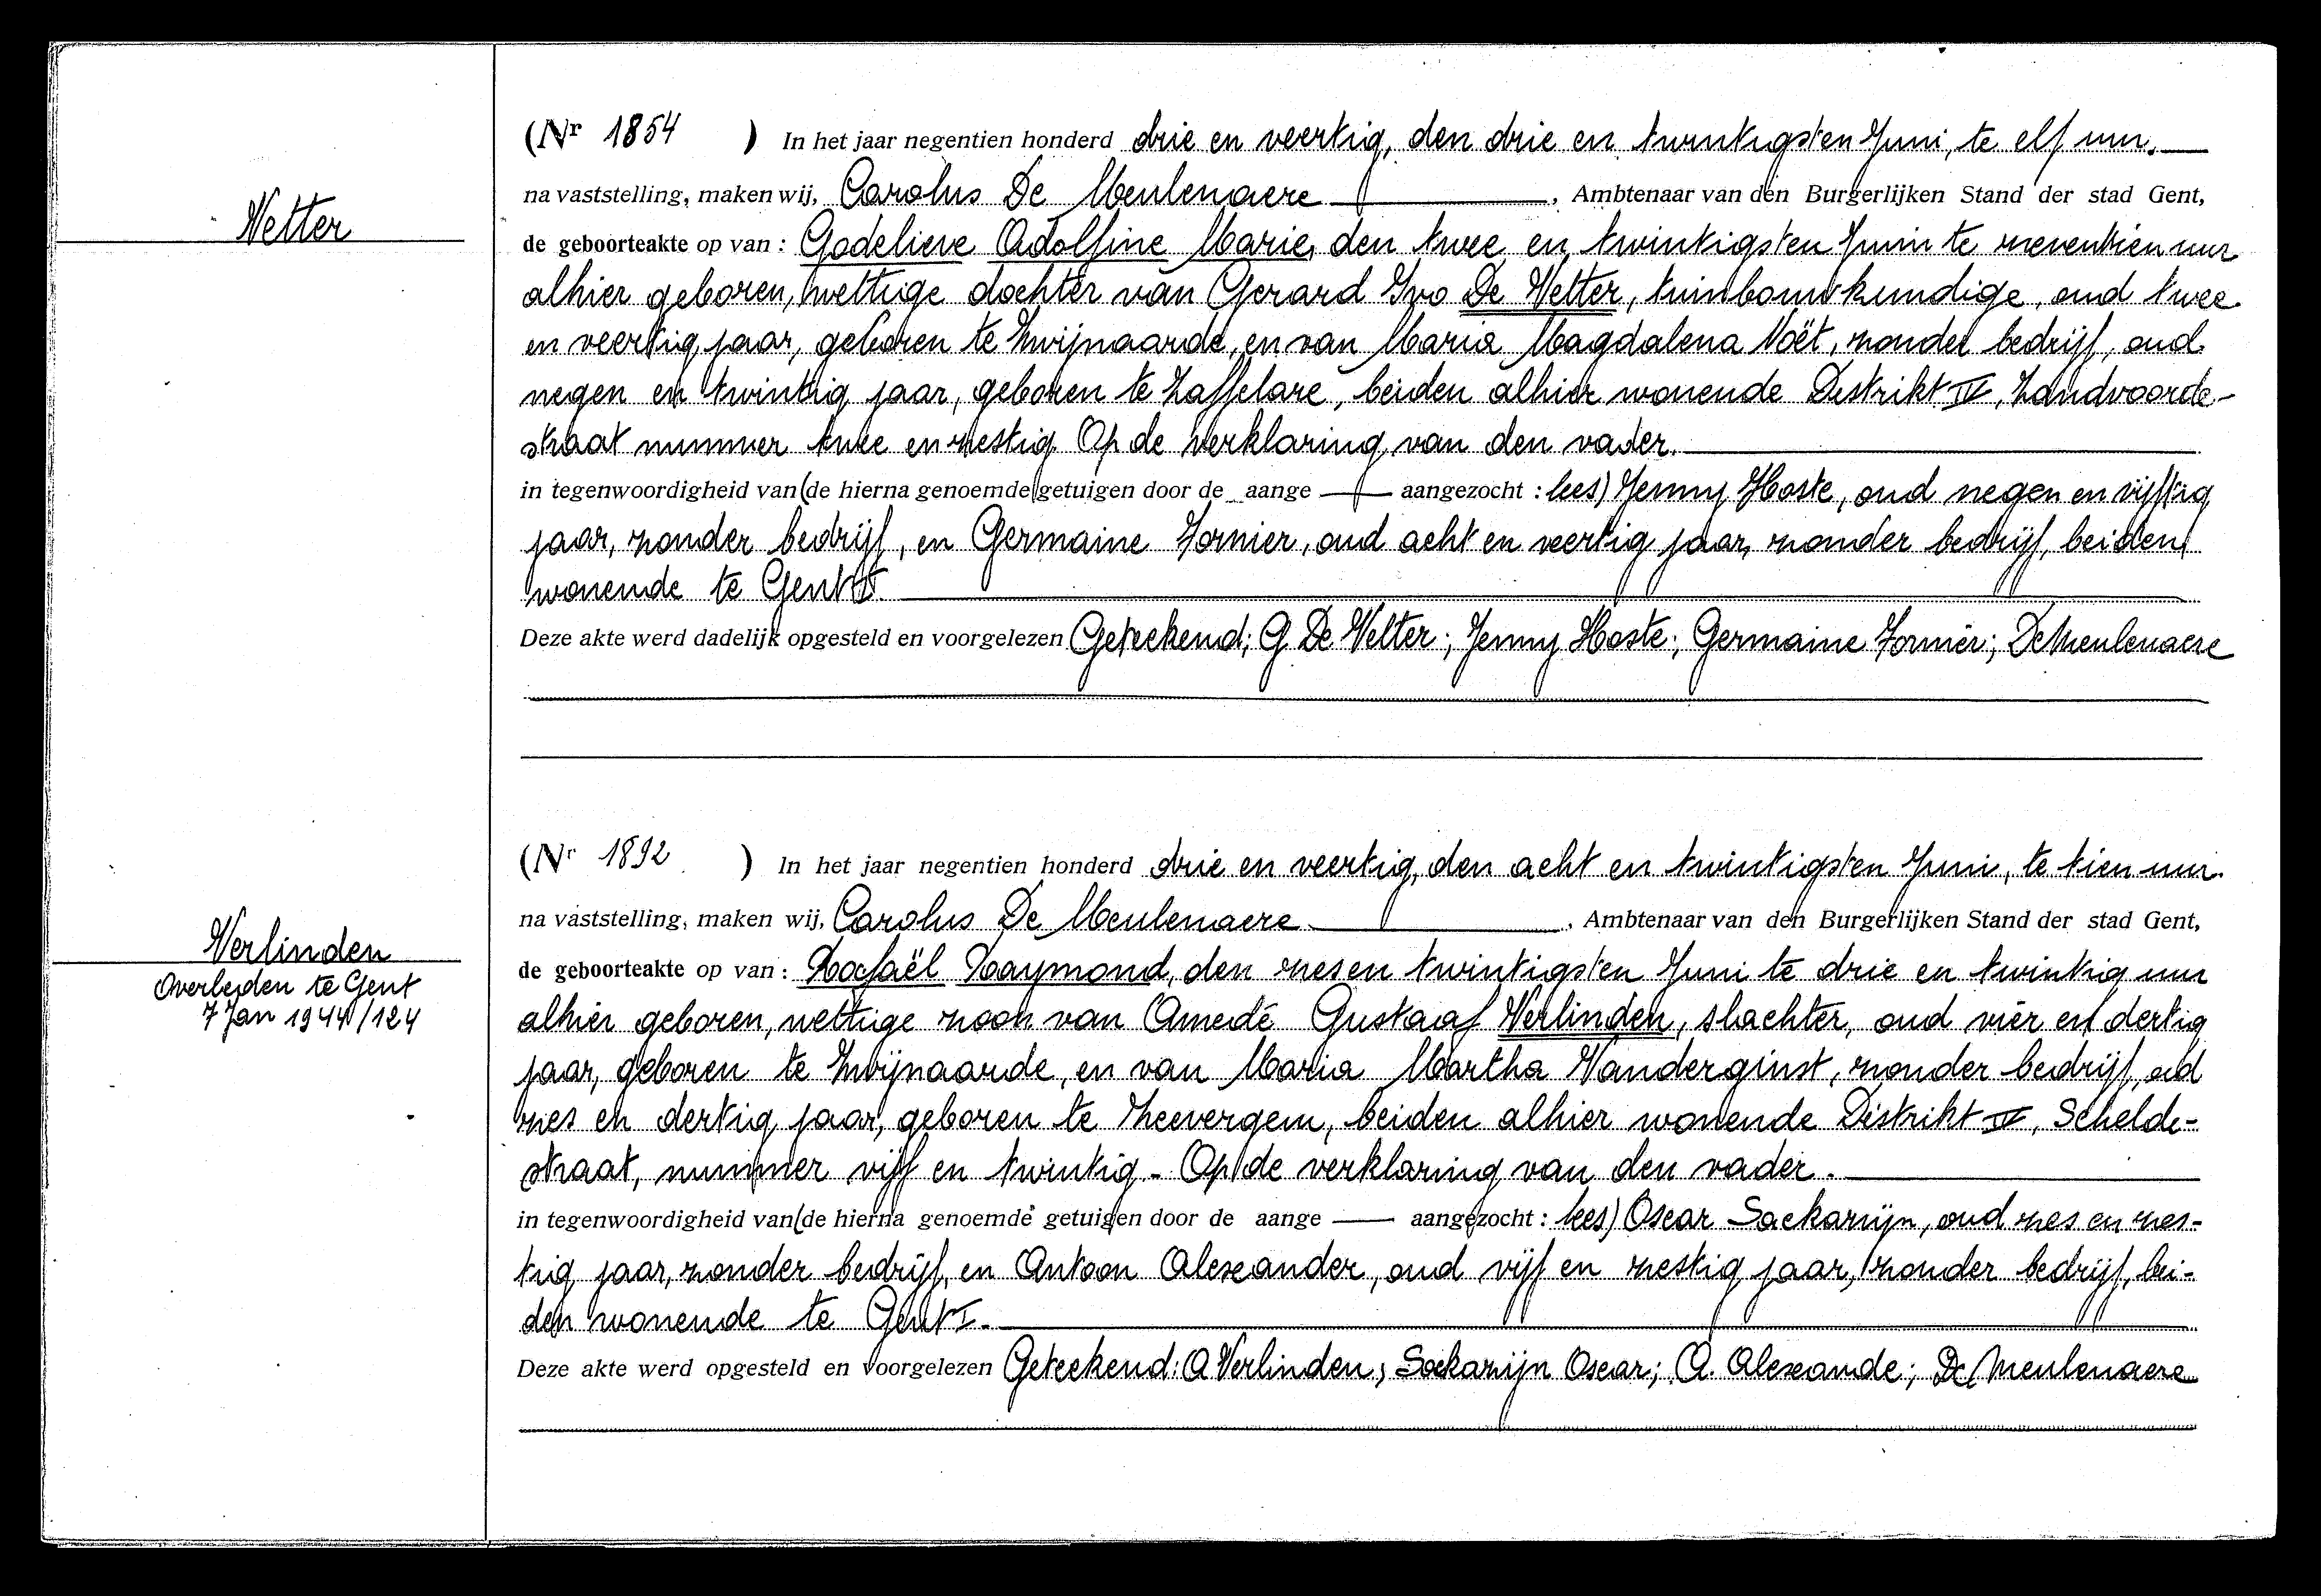 Velter
(Nr 1854 ) In het jaar negentien honderd drie en veertig, den drie en twintigsten Juni, te elf uur.
na vaststelling, maken wij, Carolus De Meulenaere, Ambtenaar van den Burgerlijken Stand der stad Gent,
de geboorteakte op van : Godelieve Adolfine Marie, den twee en twintigsten Juni te zeventien uur
alhier geboren, wettige dochter van Gerard Ivo De Velter, tuinbouwkundige, oud twee
en veertig jaar, geboren te Zwijnaarde, en van Maria Magdalena Noët, zonder bedrijf, oud
negen en twintig jaar, geboren te Zaffelare, beiden alhier wonende Distrikt IV, Zandvoorde-
straat nummer twee en zestig. Op de verklaring van den vader.
in tegenwoordigheid van (de hierna genoemde getuigen door de aange — aangezocht : lees) Jenny Hoste, oud negen en vijftig
jaar, zonder bedrijf, en Germaine Fornier, oud acht en veertig jaar, zonder bedrijf, beiden
wonende te Gent
Deze akte werd dadelijk opgesteld en voorgelezen Geteekend; G De Velter; Jenny Hoste; Germaine Fornier; DeMeulenaere
Verlinden
Overleden te Gent
7 Jan 1944/124
(Nr 1892 ) In het jaar negentien honderd drie en veertig, den acht en twintigsten Juni, te tien uur.
na vaststelling, maken wij, Carolus De Meulenaere, Ambtenaar van den Burgerlijken Stand der stad Gent,
de geboorteakte op van : Rafaël Raymond, den zes en twintigsten Juni te drie en twintig uur
alhier geboren, wettige zoon van Amedé Gustaaf Verlinden, slachter, oud vier en dertig
jaar, geboren te Zwijnaarde, en van Maria Martha Vanderginst, zonder bedrijf, oud
zes en dertig jaar, geboren te Zeevergem, beiden alhier wonende Distrikt IV, Schelde-
straat, nummer vijf en twintig - Op de verklaring van den vader.
in tegenwoordigheid van (de hierna genoemde getuigen door de aange — aangezocht : lees) Oscar Sackarijn, oud zes en zes-
tig jaar, zonder bedrijf, en Antoon Alexander, oud vijf en zestig jaar, zonder bedrijf, bei-
den wonende te Gent I.
Deze akte werd opgesteld en voorgelezen Geteekend: A Verlinden; Sackarijn Oscar; A. Alexande; De Meulenaere